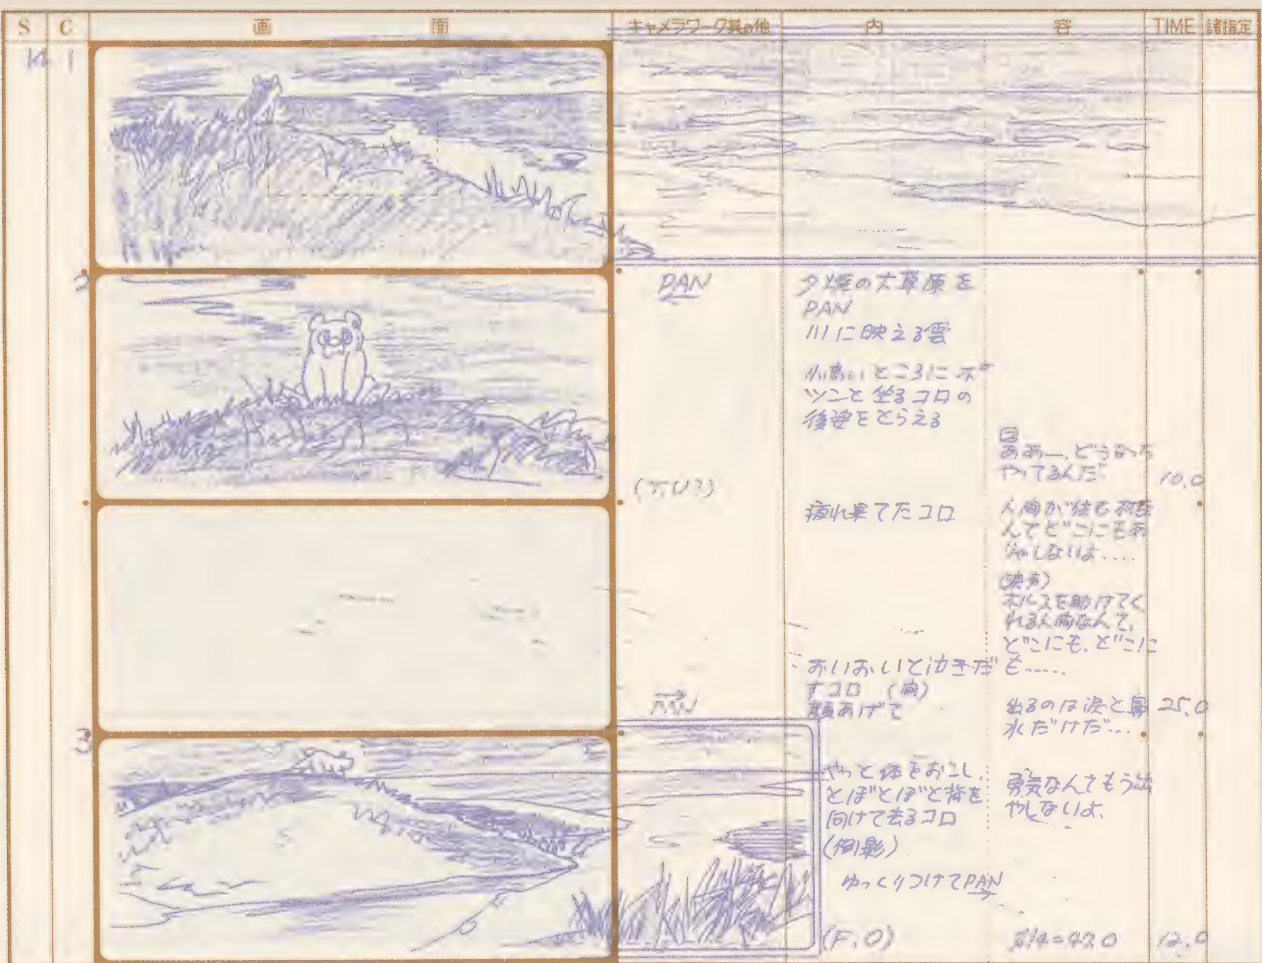 S C 画 面 キャメラワーク其の他 内 容 TIME 諸指定
14 1
2
PAN
夕焼の大草原を
PAN
川に映える雲
小高いところにポ
ツンと坐るコロの
後姿をとらえる
コ
ああー、どうなっち
やってるんだ
10.0
(T.U?)
疲れ果てたコロ
人間が住む村な
んてどこにもあ
りゃしないよ……
(泣き)
ホルスを助けてく
れる人間なんて、
どこにも、どこに
も……
おいおいと泣きだ
すコロ (間)
顔あげて
出るのは涙と鼻
水だけだ…
25.0
PAN
3
やっと体をおこし、
とぼとぼと背を
向けて去るコロ
(倒影)
ゆっくりつけてPAN
勇気なんてもう出
やしないよ。
(F.O)
S14=47.0
12.0